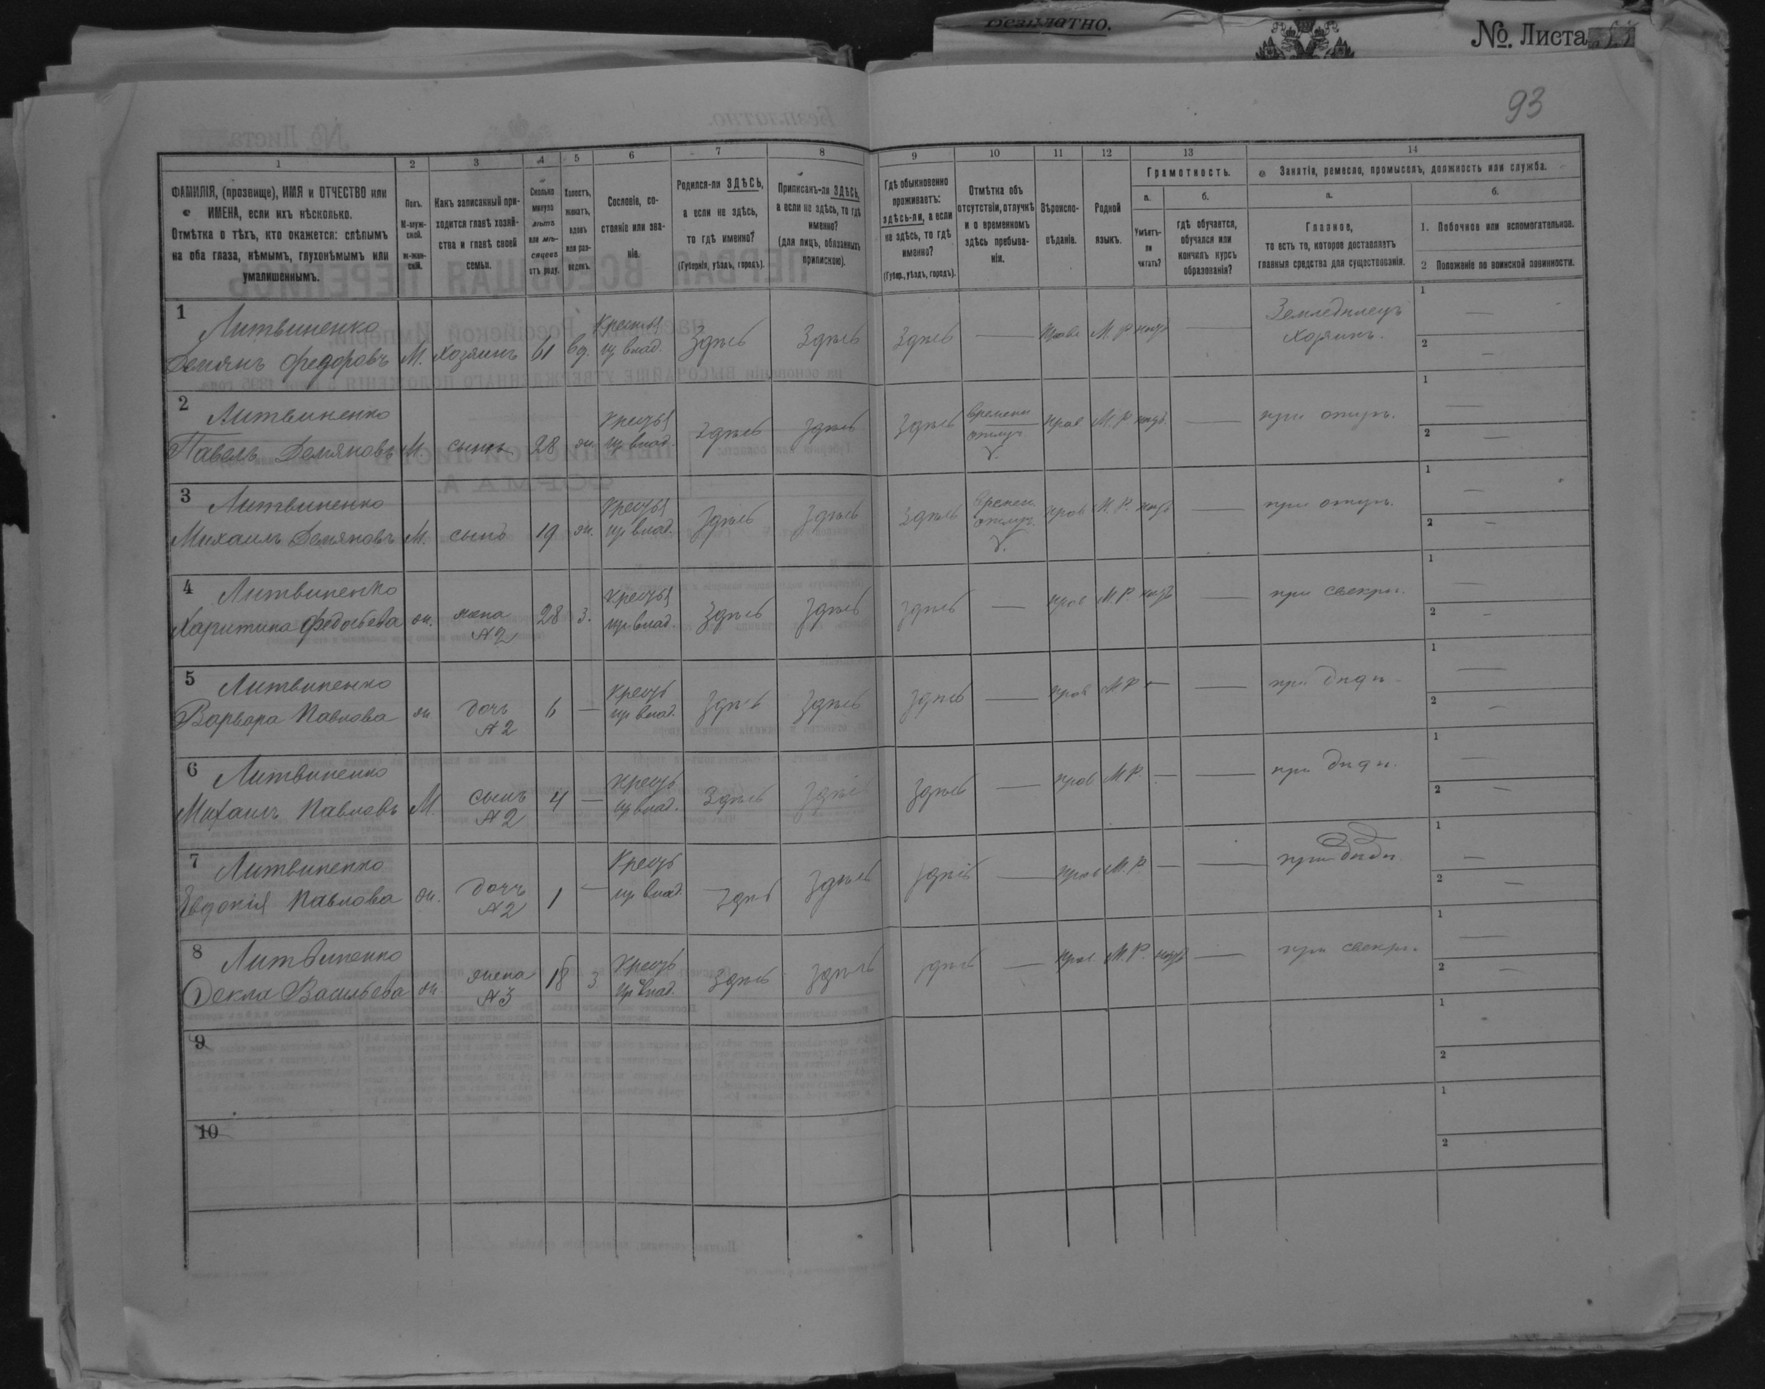 Безплатно.
№. Листа
93
1 2 3 4 5 6 7 8 9 10 11 12 13 14
ФАМИЛІЯ, (прозвище), ИМЯ и ОТЧЕСТВО или
ИМЕНА, если ихъ нѣсколько.
Отмѣтка о тѣхъ, кто окажется: слѣпымъ
на оба глаза, нѣмымъ, глухонѣмымъ или
умалишеннымъ.
Полъ.
М-муж-
ской.
Ж-жен-
скій.
Какъ записанный при-
ходится главѣ хозяй-
ства и главѣ своей
семьи.
Сколько
минуло
лѣтъ
или мѣ-
сяцевъ
отъ роду.
Холостъ,
женатъ,
вдовъ
или раз-
веденъ.
Сословіе, со-
стояніе или зва-
ніе.
Родился-ли ЗДѢСЬ,
а если не здѣсь,
то гдѣ именно?
(Губернія, уѣздъ, городъ).
Приписанъ-ли ЗДѢСЬ,
а если не здѣсь, то гдѣ
именно?
(для лицъ, обязанныхъ
припискою).
Гдѣ обыкновенно
проживаетъ:
здѣсь-ли, а если
не здѣсь, то гдѣ
именно?
(Губер., уѣздъ, городъ).
Отмѣтка объ
отсутствіи, отлучкѣ
и о временномъ
здѣсь пребыва-
ніи.
Вѣроиспо-
вѣданіе.
Родной
языкъ.
Грамотность.
а.
Умѣетъ-
ли
читать?
б.
Гдѣ обучается,
обучался или
кончилъ курсъ
образованія?
Занятія, ремесло, промыселъ, должность или служба.
а.
Главное,
то есть то, которое доставляетъ
главныя средства для существованія.
б.
1. Побочное или вспомогательное.
2 Положеніе по воинской повинности.
1
Литвиненко
Демянъ Федоровъ М. хозяинъ 61 вд. из влад. Здѣсь Здѣсь Здѣсь — М. Р. — Земледѣлецъ
хозяинъ. 1 — 2 —
2
Литвиненко
Павелъ Демяновъ М. сынъ 28 ж. из влад. здѣсь здѣсь здѣсь М. Р. — при отцѣ. 1 — 2 —
3
Литвиненко
Михаилъ Демяновъ М. сынъ 19 ж. из влад. здѣсь здѣсь здѣсь М. Р. — при отцѣ. 1 — 2 —
4
Литвиненко
Харитина Федосѣева ж. жена
№2 28 з. из влад. здѣсь здѣсь здѣсь — прав М. Р. — при свекрѣ. 1 — 2 —
5
Литвиненко
Варвара Павлова ж. дочь
№2 6 — из влад. здѣсь здѣсь здѣсь — прав М. Р. — — при дѣдѣ. 1 — 2 —
6
Литвиненко
Михаилъ Павловъ М. сынъ
№2 4 — из влад. Здѣсь здѣсь здѣсь — прав М. Р. — — при дѣдѣ. 1 — 2 —
7
Литвиненко
Евдокія Павлова ж. дочь
№2 1 — из влад. здѣсь здѣсь здѣсь — прав М. Р. — — при дѣдѣ. 1 — 2 —
8
Литвиненко
Фекла Васильева ж. жена
№3 18 з из влад. здѣсь здѣсь здѣсь — прав М. Р. — при свекрѣ. 1 — 2 —
9
1
2
10
1
2